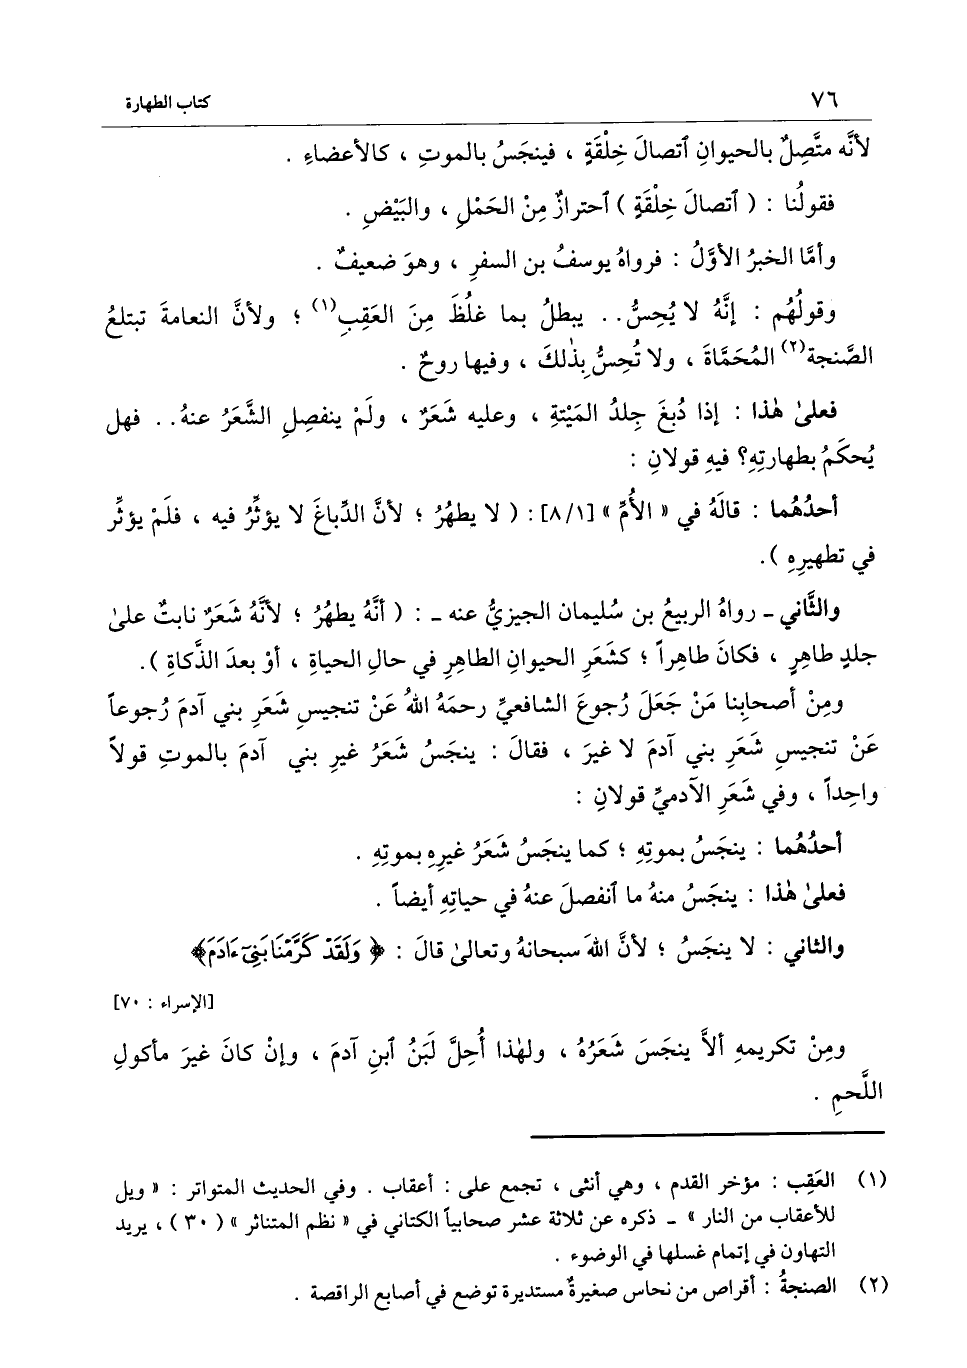 ٧٦ كتاب الطهارة
لأنَّه متَّصِلٌ بالحيوانِ ٱتصالَ خِلْقَةٍ ، فينجَسُ بالموتِ ، كالأعضاءِ .
فقولُنا : ( ٱتصالَ خِلْقَةٍ ) ٱحترازٌ مِنْ الحَمْلِ ، والبَيْضِ .
وأمَّا الخبرُ الأوَّلُ : فرواهُ يوسفُ بن السفرِ ، وهوَ ضعيفٌ .
وقولُهُم : إنَّهُ لا يُحِسُّ . . يبطلُ بما غلُظَ مِنَ العَقِبِ(١) ؛ ولأنَّ النعامةَ تبتلعُ
الصَّنجة(٢) المُحَمَّاةَ ، ولا تُحِسُّ بِذٰلكَ ، وفيها روحٌ .
فعلىٰ هٰذا : إذا دُبِغَ جِلدُ المَيْتةِ ، وعليه شَعَرٌ ، ولَمْ ينفصِلِ الشَّعَرُ عنهُ . . فهل
يُحكَمُ بطهارتِهِ؟ فيهِ قولانِ :
أحدُهُما : قالَهُ في « الأُمِّ » [٨/١] : ( لا يطهُرُ ؛ لأنَّ الدِّباغَ لا يؤثِّرُ فيه ، فلَمْ يؤثِّر
في تطهيرِهِ ) .
والثَّاني ـ رواهُ الربيعُ بن سُليمان الجيزيُّ عنه ـ : ( أنَّهُ يطهُرُ ؛ لأنَّهُ شَعَرٌ نابتٌ علىٰ
جلدٍ طاهِرٍ ، فكانَ طاهِراً ؛ كشَعَرِ الحيوانِ الطاهِرِ في حالِ الحياةِ ، أوْ بعدَ الذَّكاةِ ) .
ومِنْ أصحابِنا مَنْ جَعَلَ رُجوعَ الشافعيِّ رحمَهُ اللهُ عَنْ تنجيسِ شَعَرِ بني آدمَ رُجوعاً
عَنْ تنجيسِ شَعَرِ بني آدمَ لا غيرَ ، فقالَ : ينجَسُ شَعَرُ غيرِ بني آدمَ بالموتِ قولاً
واحِداً ، وفي شَعَرِ الآدميِّ قولانِ :
أحدُهُما : ينجَسُ بموتِهِ ؛ كما ينجَسُ شَعَرُ غيرِهِ بموتِهِ .
فعلىٰ هٰذا : ينجَسُ منهُ ما ٱنفصلَ عنهُ في حياتِهِ أيضاً .
والثاني : لا ينجَسُ ؛ لأنَّ اللهَ سبحانهُ وتعالىٰ قالَ : ﴿ وَلَقَدْ كَرَّمْنَا بَنِىٓ ءَادَمَ ﴾
[الإسراء : ٧٠]
ومِنْ تكريمهِ ألاَّ ينجَسَ شَعَرُهُ ، ولهٰذا أُحِلَّ لَبَنُ ٱبنِ آدمَ ، وإنْ كانَ غيرَ مأكولِ
اللَّحمِ .
(١) العَقِب : مؤخر القدم ، وهي أنثى ، تجمع على : أعقاب . وفي الحديث المتواتر : « ويل
للأعقاب من النار » ـ ذكره عن ثلاثة عشر صحابياً الكتاني في « نظم المتناثر » ( ٣٠ ) ، يريد
التهاون في إتمام غسلها في الوضوء .
(٢) الصنجةُ : أقراص من نحاس صغيرةٌ مستديرة توضع في أصابع الراقصة .